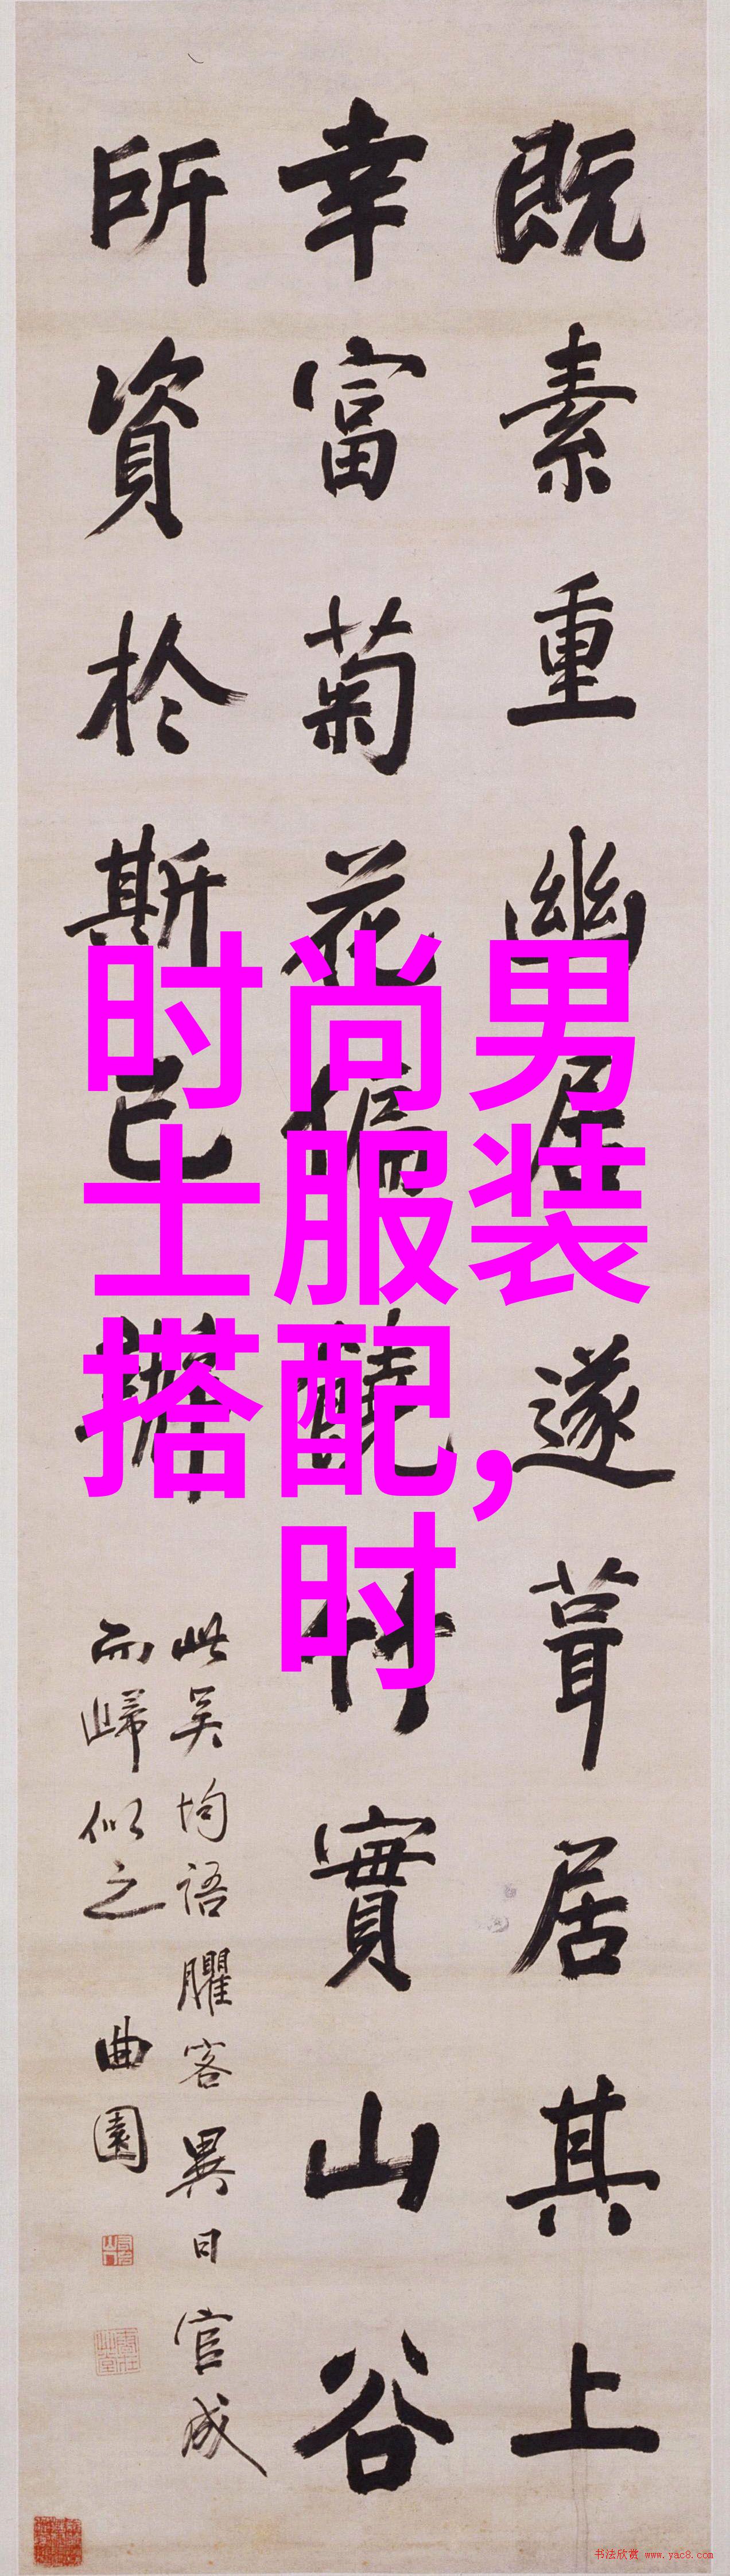 既素重幽居遂葺居其上
幸富菊花偏饒竹實山谷
所資於斯已辦
此吳均語臞客異日官成
而歸似之 曲園
时尚男
士服装
搭配,
时
书法欣赏 www.yac8.com